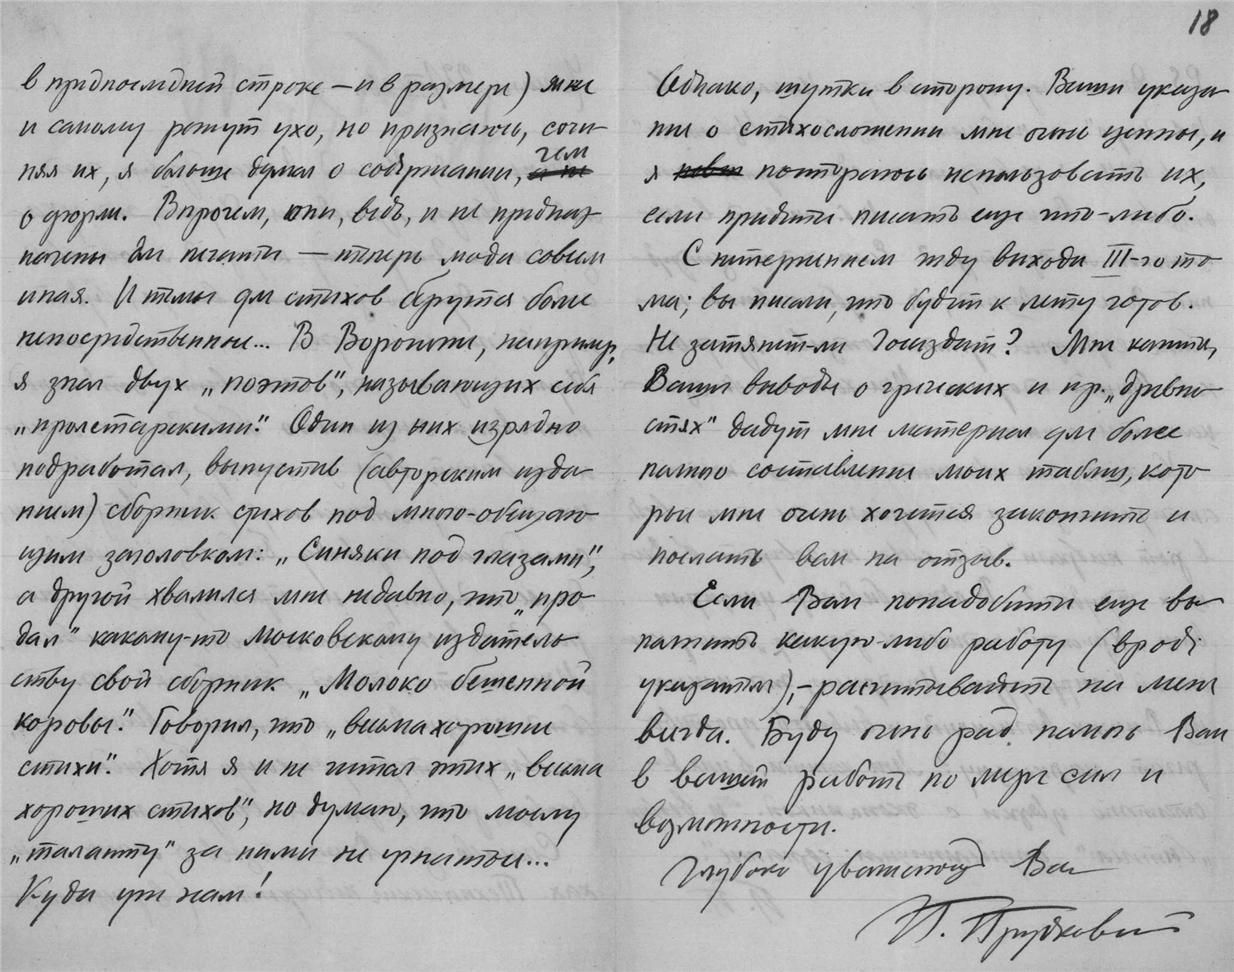 18
в предпоследней строке — и в размере) мне
и самому режут ухо, но признаюсь, сочи-
няя их, я больше думал о содержании, чем
о форме. Впрочем, они, ведь, и не предназ-
начены для печати — теперь мода совсем
иная. И темы для стихов берутся более
непосредственные... В Воронеже, например,
я знал двух „поэтов", называющих себя
„пролетарскими". Один из них изрядно
подработал, выпустив (авторским изда-
нием) сборник стихов под много-обещаю-
щим заголовком: „Синяки под глазами",
а другой хвалился мне недавно, что „про-
дал" какому-то Московскому издатель-
ству свой сборник „Молоко бешенной
коровы". Говорил, что „весьма хорошие
стихи". Хотя я и не читал этих „весьма
хороших стихов", но думаю, что моему
„таланту" за ними не угнаться...
Куда уж нам!
Однако, шутки в сторону. Ваши указа-
ния о стихосложении мне очень ценны, и
я постараюсь использовать их,
если придется писать еще что-либо.
С нетерпением жду выхода III-го то-
ма; вы писали, что будет к лету готов.
Не затянет-ли Госиздат? Мне кажется,
Ваши выводы о греческих и пр. „древно-
стях" дадут мне материал для более
полного составления моих таблиц, кото-
рые мне очень хочется закончить и
послать вам на отзыв.
Если Вам понадобится еще вы-
полнить какую-либо работу (вроде
указателя), — расчитывайте на меня
всегда. Буду очень рад помочь Вам
в вашей работе по мере сил и
возможности.
Глубоко уважающий Вас